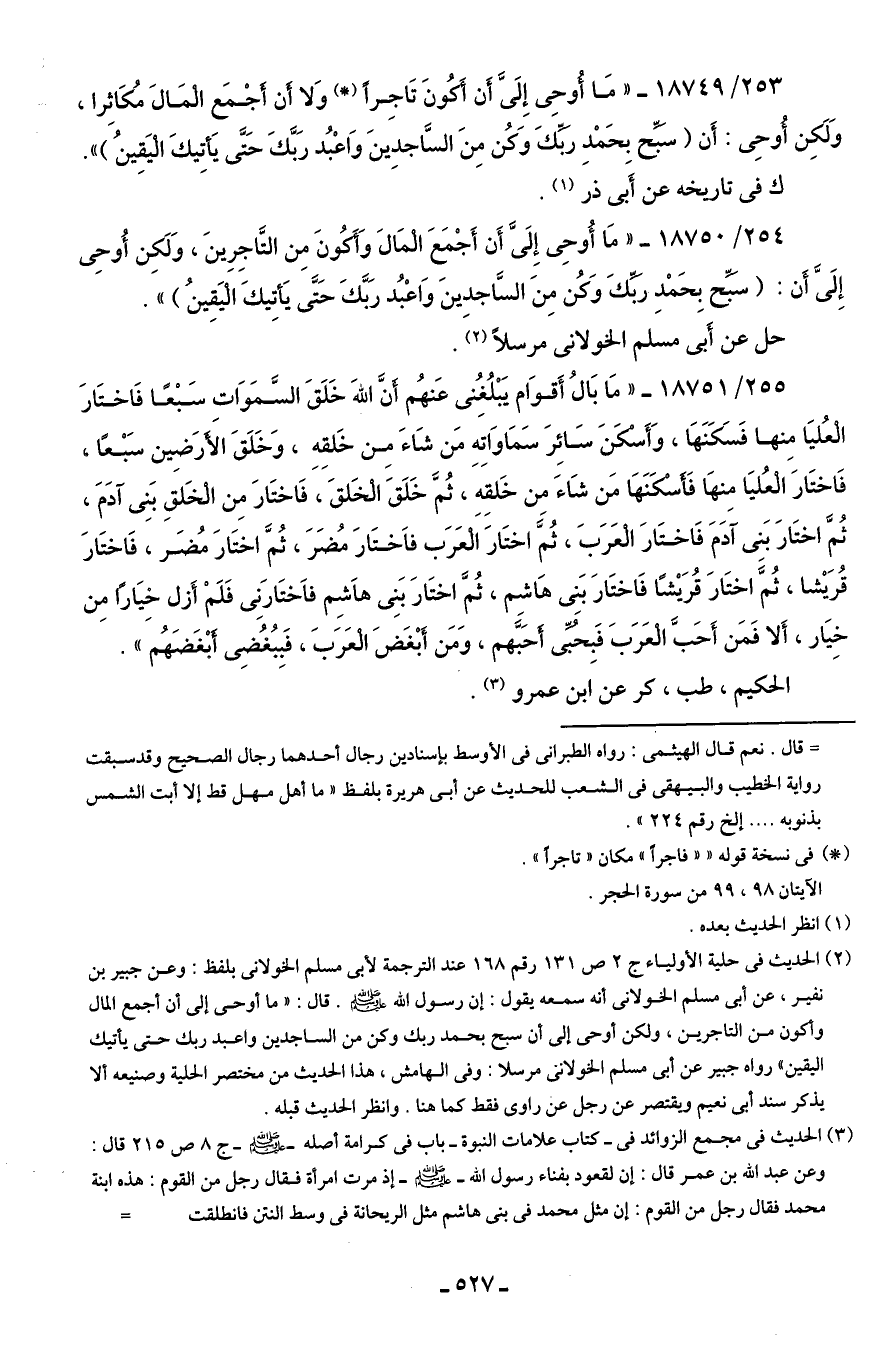 ١٨٧٤٩/٢٥٣ ـ « مَـا أُوحِى إِلَىَّ أَن أَكُونَ تَاجِـراً (*) وَلا أَن أَجْـمَع الْمَـالَ مُكَاثِرا ،
وَلَكِن أُوحِى : أَن ( سَبِّح بِحَمْدِ رَبِّكَ وَكُن مِنَ السَّاجِدِينَ وَاعْبُد رَبَّكَ حَتَّى يَأتِيكَ الْيَقِينُ )».
ك فى تاريخه عن أَبى ذر (١) .
١٨٧٥٠/٢٥٤ ـ « مَا أُوحِى إِلَىَّ أَن أَجْمَعَ الْمَالَ وَأَكُونَ مِن التَّاجِرِينَ ، وَلَكِن أُوحِى
إِلَىَّ أَن : ( سَبِّح بِحَمْدِ رَبِّكَ وَكُن مِنَ السَّاجِدِينَ وَاعْبُد رَبَّكَ حَتَّى يَأتِيكَ الْيَقِينُ ) » .
حل عن أَبى مسلم الخولانى مرسلاً (٢) .
١٨٧٥١/٢٥٥ ـ « مَا بَالُ أَقوَامٍ يَبْلُغُنِى عَنهُم أَنَّ اللهَ خَلَقَ السَّـمَوَاتِ سَـبْعًـا فَاخـتَارَ
العُليَا مِنهـا فَسَكَنَهَا ، وَأَسْكَنَ سَـائِرَ سَمَاوَاتِهِ مَن شَاءَ مِـن خَلقِهِ ، وَخَلَقَ الأَرَضِين سَبعًـا ،
فَاختَارَ الْعُليَا مِنهَا فَأَسْكَنَهَا مَن شَاءَ مِن خَلقِهِ ، ثُمَّ خَلَقَ الْخَلقَ ، فَاختَارَ مِن الْخَلقِ بَنِى آدَمَ ،
ثُمَّ اختَارَ بَنِى آدَمَ فَاخـتَـارَ الْعَرَبَ ، ثُمَّ اختَارَ الْعَرَب فاَخـتَارَ مُضَرَ ، ثُمَّ اختَارَ مُضَـر ، فَاختَارَ
قُرَيْشا ، ثُمَّ اختَارَ قُرَيْشًا فَاختَارَ بَنِى هَاشِم ، ثُمَّ اختَارَ بَنِى هاَشِم فاَختَارَنِى فَلَمْ أَزل خِيَارًا مِن
خِيَار ، أَلا فَمَن أَحَبَّ الْعَرَبَ فَبِحُبِّى أَحَبَّهم ، وَمَن أَبْغَضَ الْعَرَبَ ، فَبِبُغْضِى أَبْغَضَهُم » .
الحكيم ، طب ، كر عن ابن عمرو (٣) .
= قال . نعم قـال الهيثـمى : رواه الطبرانى فى الأوسط بإسنادين رجال أحـدهما رجال الصحيح وقدسـبقت
رواية الخطيب والبـيـهقى فى الـشـعب للحـديث عن أبـى هريرة بلـفظ « ما أهل مـهـل قط إلا أبت الشـمس
بذنوبه .... إلخ رقم ٢٢٤ » .
(*) فى نسخة قوله « « فاجراً » مكان « تاجراً » .
الآيتان ٩٨ ، ٩٩ من سورة الحجر .
(١) انظر الحديث بعده .
(٢) الحديث فى حلية الأوليـاء ج ٢ ص ١٣١ رقم ١٦٨ عند الترجمة لأبى مسلم الخولانى بلفظ : وعـن جبير بن
نفيـر ، عن أبى مسلم الخـولانى أنه سمـعه يقول : إن رسـول الله ﷺ . قال : « ما أوحـى إلى أن أجمع المال
وأكون مـن التاجريـن ، ولكن أوحى إلى أن سبح بحـمد ربك وكن من السـاجدين واعـبد ربك حتـى يأتيك
اليقين» رواه جبير عن أبى مسلم الخولانى مرسلا : وفى الـهامش ، هذا الحديث من مختصر الحلية وصنيعه ألا
يذكر سند أبى نعيم ويقتصر عن رجل عن راوى فقط كما هنا . وانظر الحديث قبله .
(٣) الحديث فى مجمع الزوائد فى ـ كتاب علامات النبوة ـ باب فى كـرامة أصله ـ ﷺ ـ ج ٨ ص ٢١٥ قال :
وعن عبد الله بن عمـر قال : إن لقعود بفناء رسول الله ـ ﷺ ـ إذ مرت امرأة فـقال رجل من القوم : هذه ابنة
محمد فقال رجل من القوم : إن مثل محمد فى بنى هاشم مثل الريحانة فى وسط النتن فانطلقت =
ـ ٥٢٧ ـ